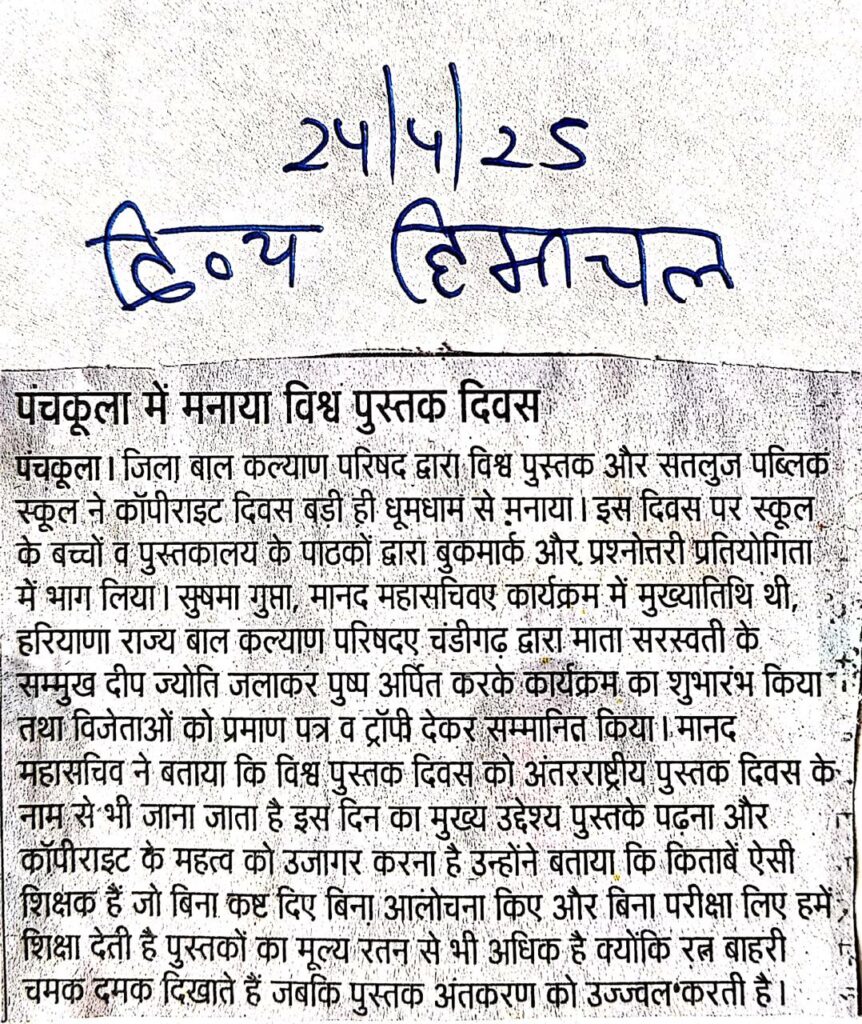 24/4/25
दिव्य हिमाचल
पंचकूला में मनाया विश्व पुस्तक दिवस
पंचकूला। जिला बाल कल्याण परिषद द्वारा विश्व पुस्तक और सतलुज पब्लिक
स्कूल ने कॉपीराइट दिवस बड़ी ही धूमधाम से मनाया। इस दिवस पर स्कूल
के बच्चों व पुस्तकालय के पाठकों द्वारा बुकमार्क और प्रश्नोत्तरी प्रतियोगिता
में भाग लिया। सुषमा गुप्ता, मानद महासचिवए कार्यक्रम में मुख्यातिथि थी,
हरियाणा राज्य बाल कल्याण परिषदए चंडीगढ़ द्वारा माता सरस्वती के
सम्मुख दीप ज्योति जलाकर पुष्प अर्पित करके कार्यक्रम का शुभारंभ किया
तथा विजेताओं को प्रमाण पत्र व ट्रॉफी देकर सम्मानित किया। मानद
महासचिव ने बताया कि विश्व पुस्तक दिवस को अंतरराष्ट्रीय पुस्तक दिवस के
नाम से भी जाना जाता है इस दिन का मुख्य उद्देश्य पुस्तके पढ़ना और
कॉपीराइट के महत्व को उजागर करना है उन्होंने बताया कि किताबें ऐसी
शिक्षक हैं जो बिना कष्ट दिए बिना आलोचना किए और बिना परीक्षा लिए हमें
शिक्षा देती है पुस्तकों का मूल्य रतन से भी अधिक है क्योंकि रत्न बाहरी
चमक दमक दिखाते हैं जबकि पुस्तक अंतकरण को उज्ज्वल करती है।